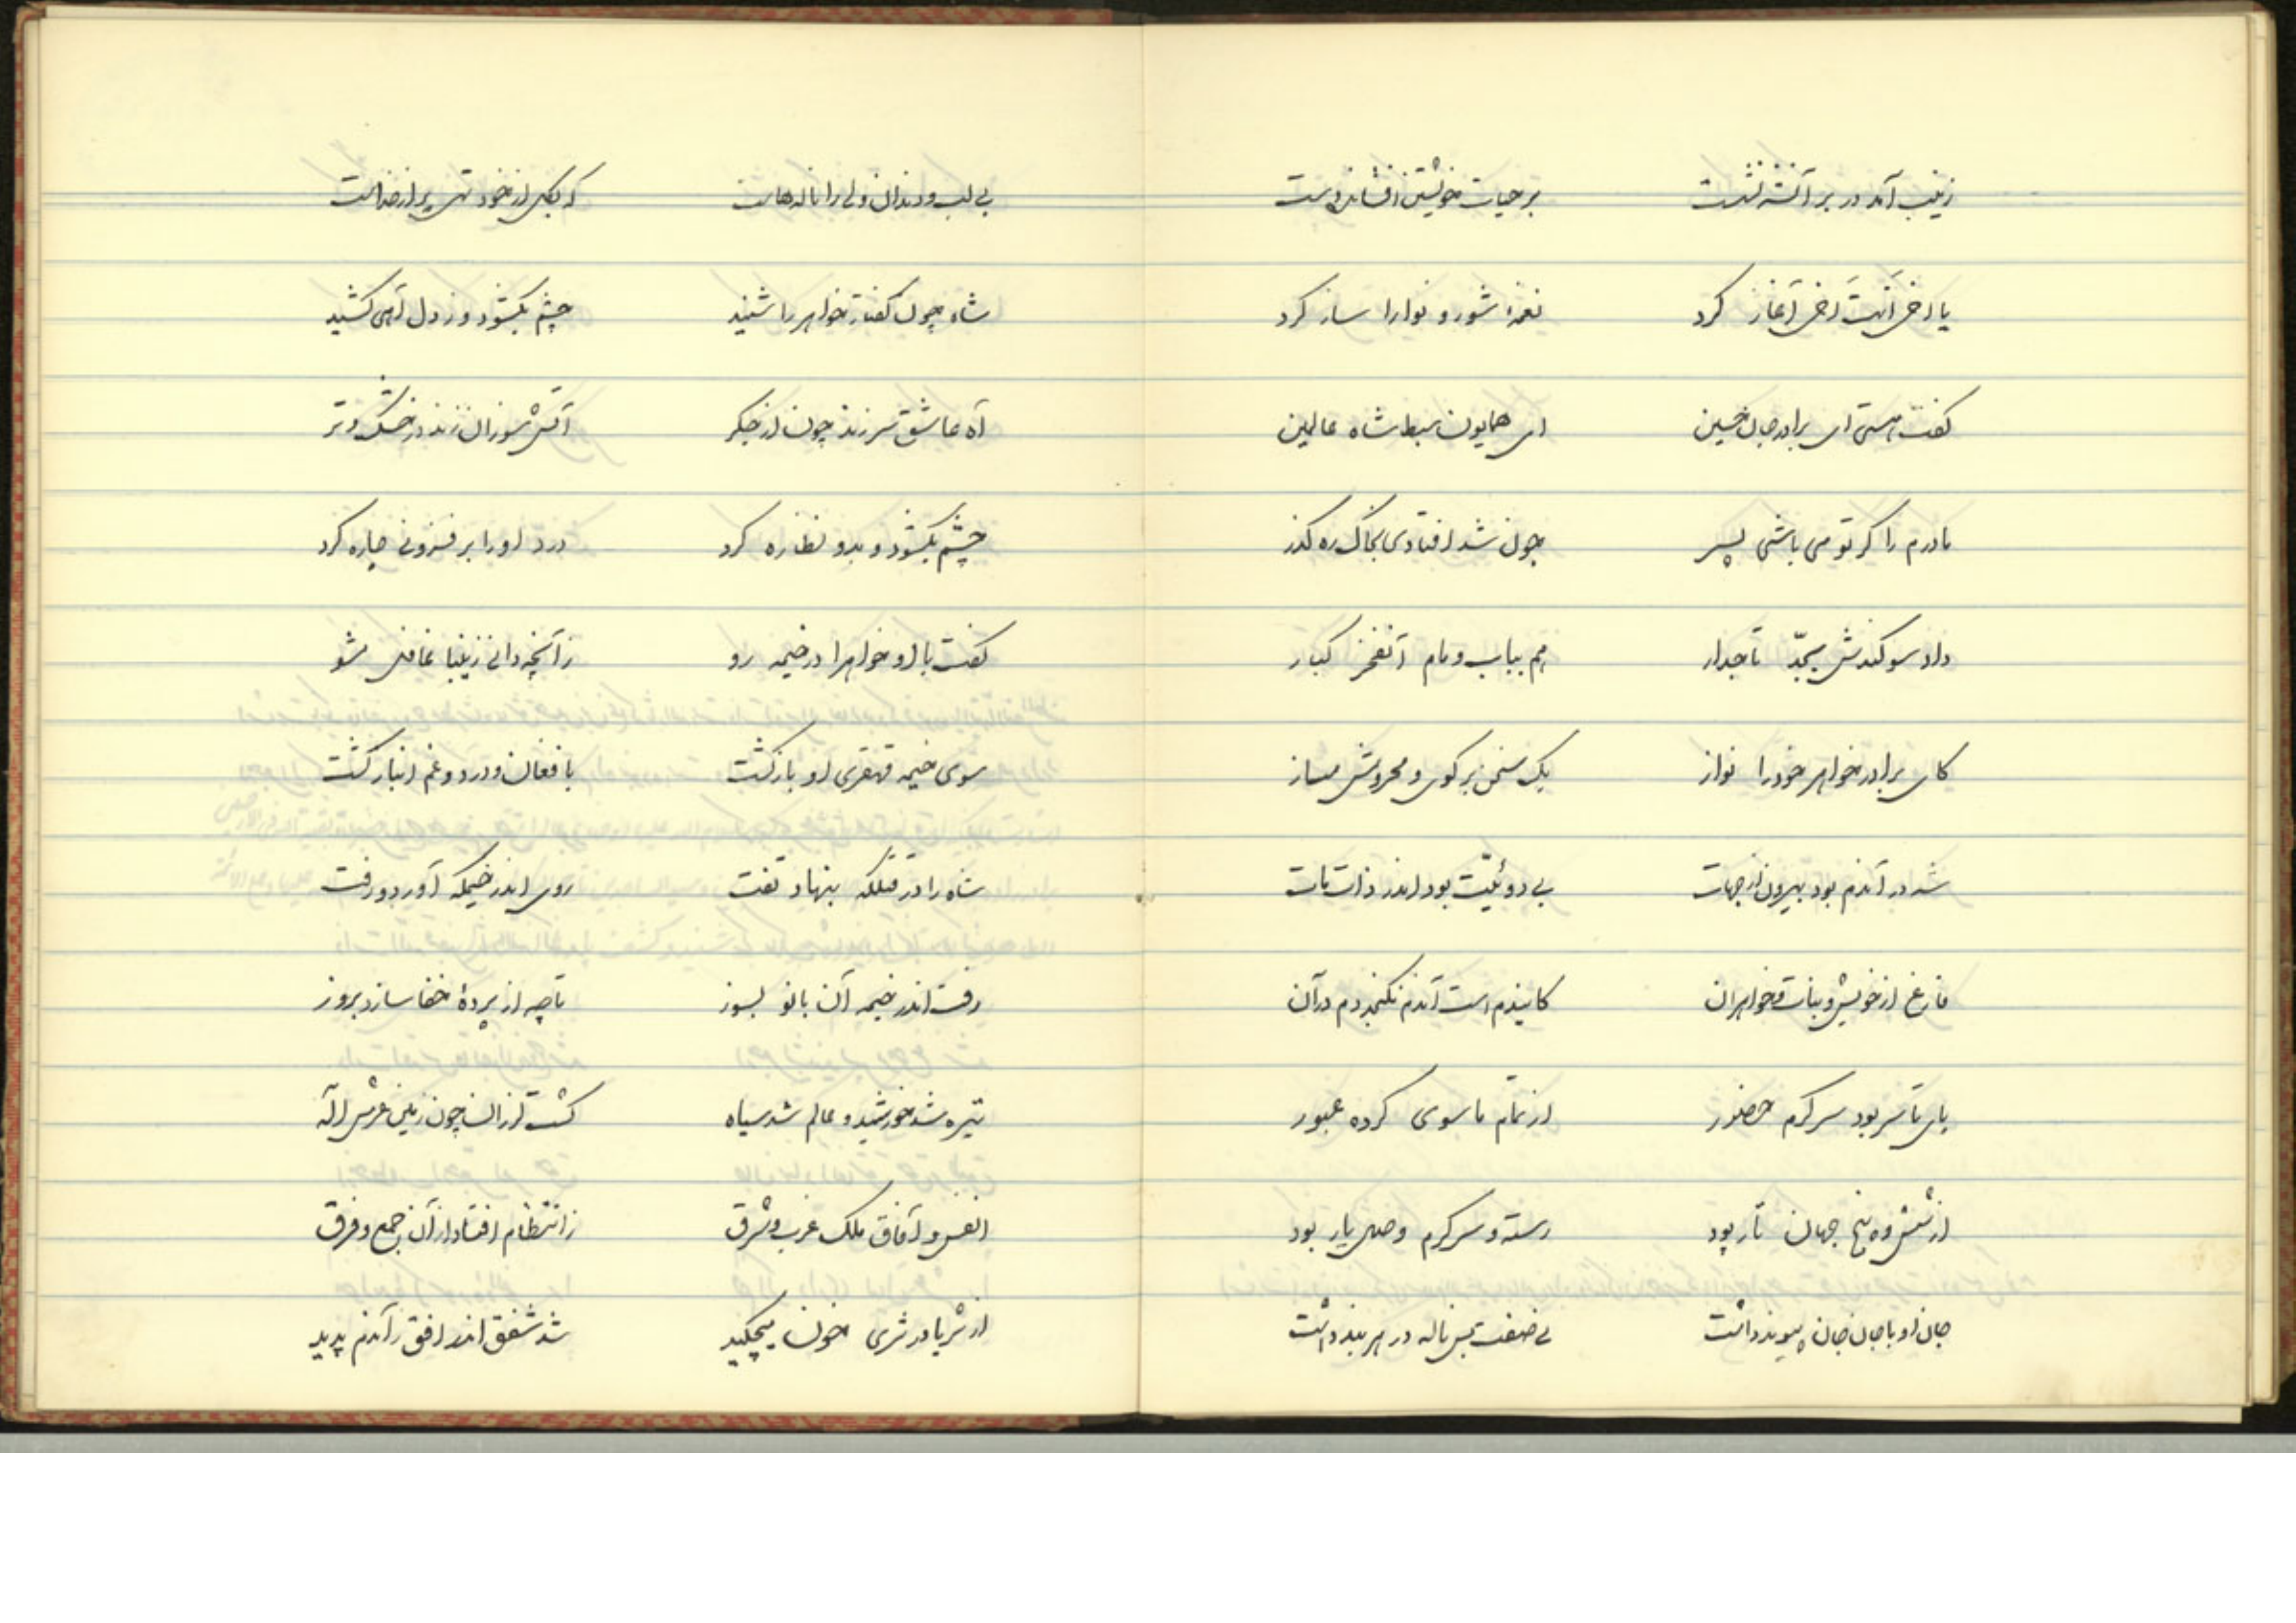 زینب آمد در بر آنشه نشست بر حیات خویشتن افشاند دست
یا اخی اَانتَ اَخی آغاز کرد نغمهٔ شور و نوا را ساز کرد
گفت هستی ای برادر جان حسین ای همایون سبط شاه عالمین
مادرم را گر تو می باشی پسر چون شد افتادی بخاک ره گذر
داد سوگندش بجدّ تاجدار هم بباب و مام آنفخر کبار
کای برادر خواهر خود را نواز یک سخن بر گوی و محروش مساز
شه در آندم بود بیرون از جهات بی دوئیّت بود اندر ذات مات
فارغ از خویش و بنات و خواهران کایندم است آندم نگنجد دم در آن
پای تا سر بود سرگرم حضور از تمام ما سوی کرده عبور
از شش و پنج جهان تار پود رسته و سرگرم وصل یار بود
جان او با جان جان پیوند داشت نی صفت بس ناله در هر بند داشت
بی لب و دندان ولی را ناله هاست که بکلی از خود تهی پر از خداست
شاه چون گفتار خواهر را شنید چشم بگشود و ز دل آهی کشید
آه عاشق سر زند چون از جگر آتش سوزان زند در خشک و تر
چشم بگشود و بدو نظاره کرد درد او را بر فزونی چاره کرد
گفت با او خواهرا در خیمه رو زآنچه دانی زینبا غافل مشو
سوی خیمه قهقری او باز گشت با فغان و درد و غم انباز گشت
شاه را در قتلگه بنهاد تفت روی اندر خیمگه آورد و رفت
رفت اندر خیمه آن بانو بسوز تا چه از پردهٔ خفا سازد بروز
تیره شد خورشید و عالم شد سیاه گشت لرزان چون زمین عرش اله
انفس و آفاق ملک غرب و شرق ز انتظام افتاد از آن جمع و فرق
از ثریا در ثری خون میچکید شد شفق اندر افق زآندم پدید